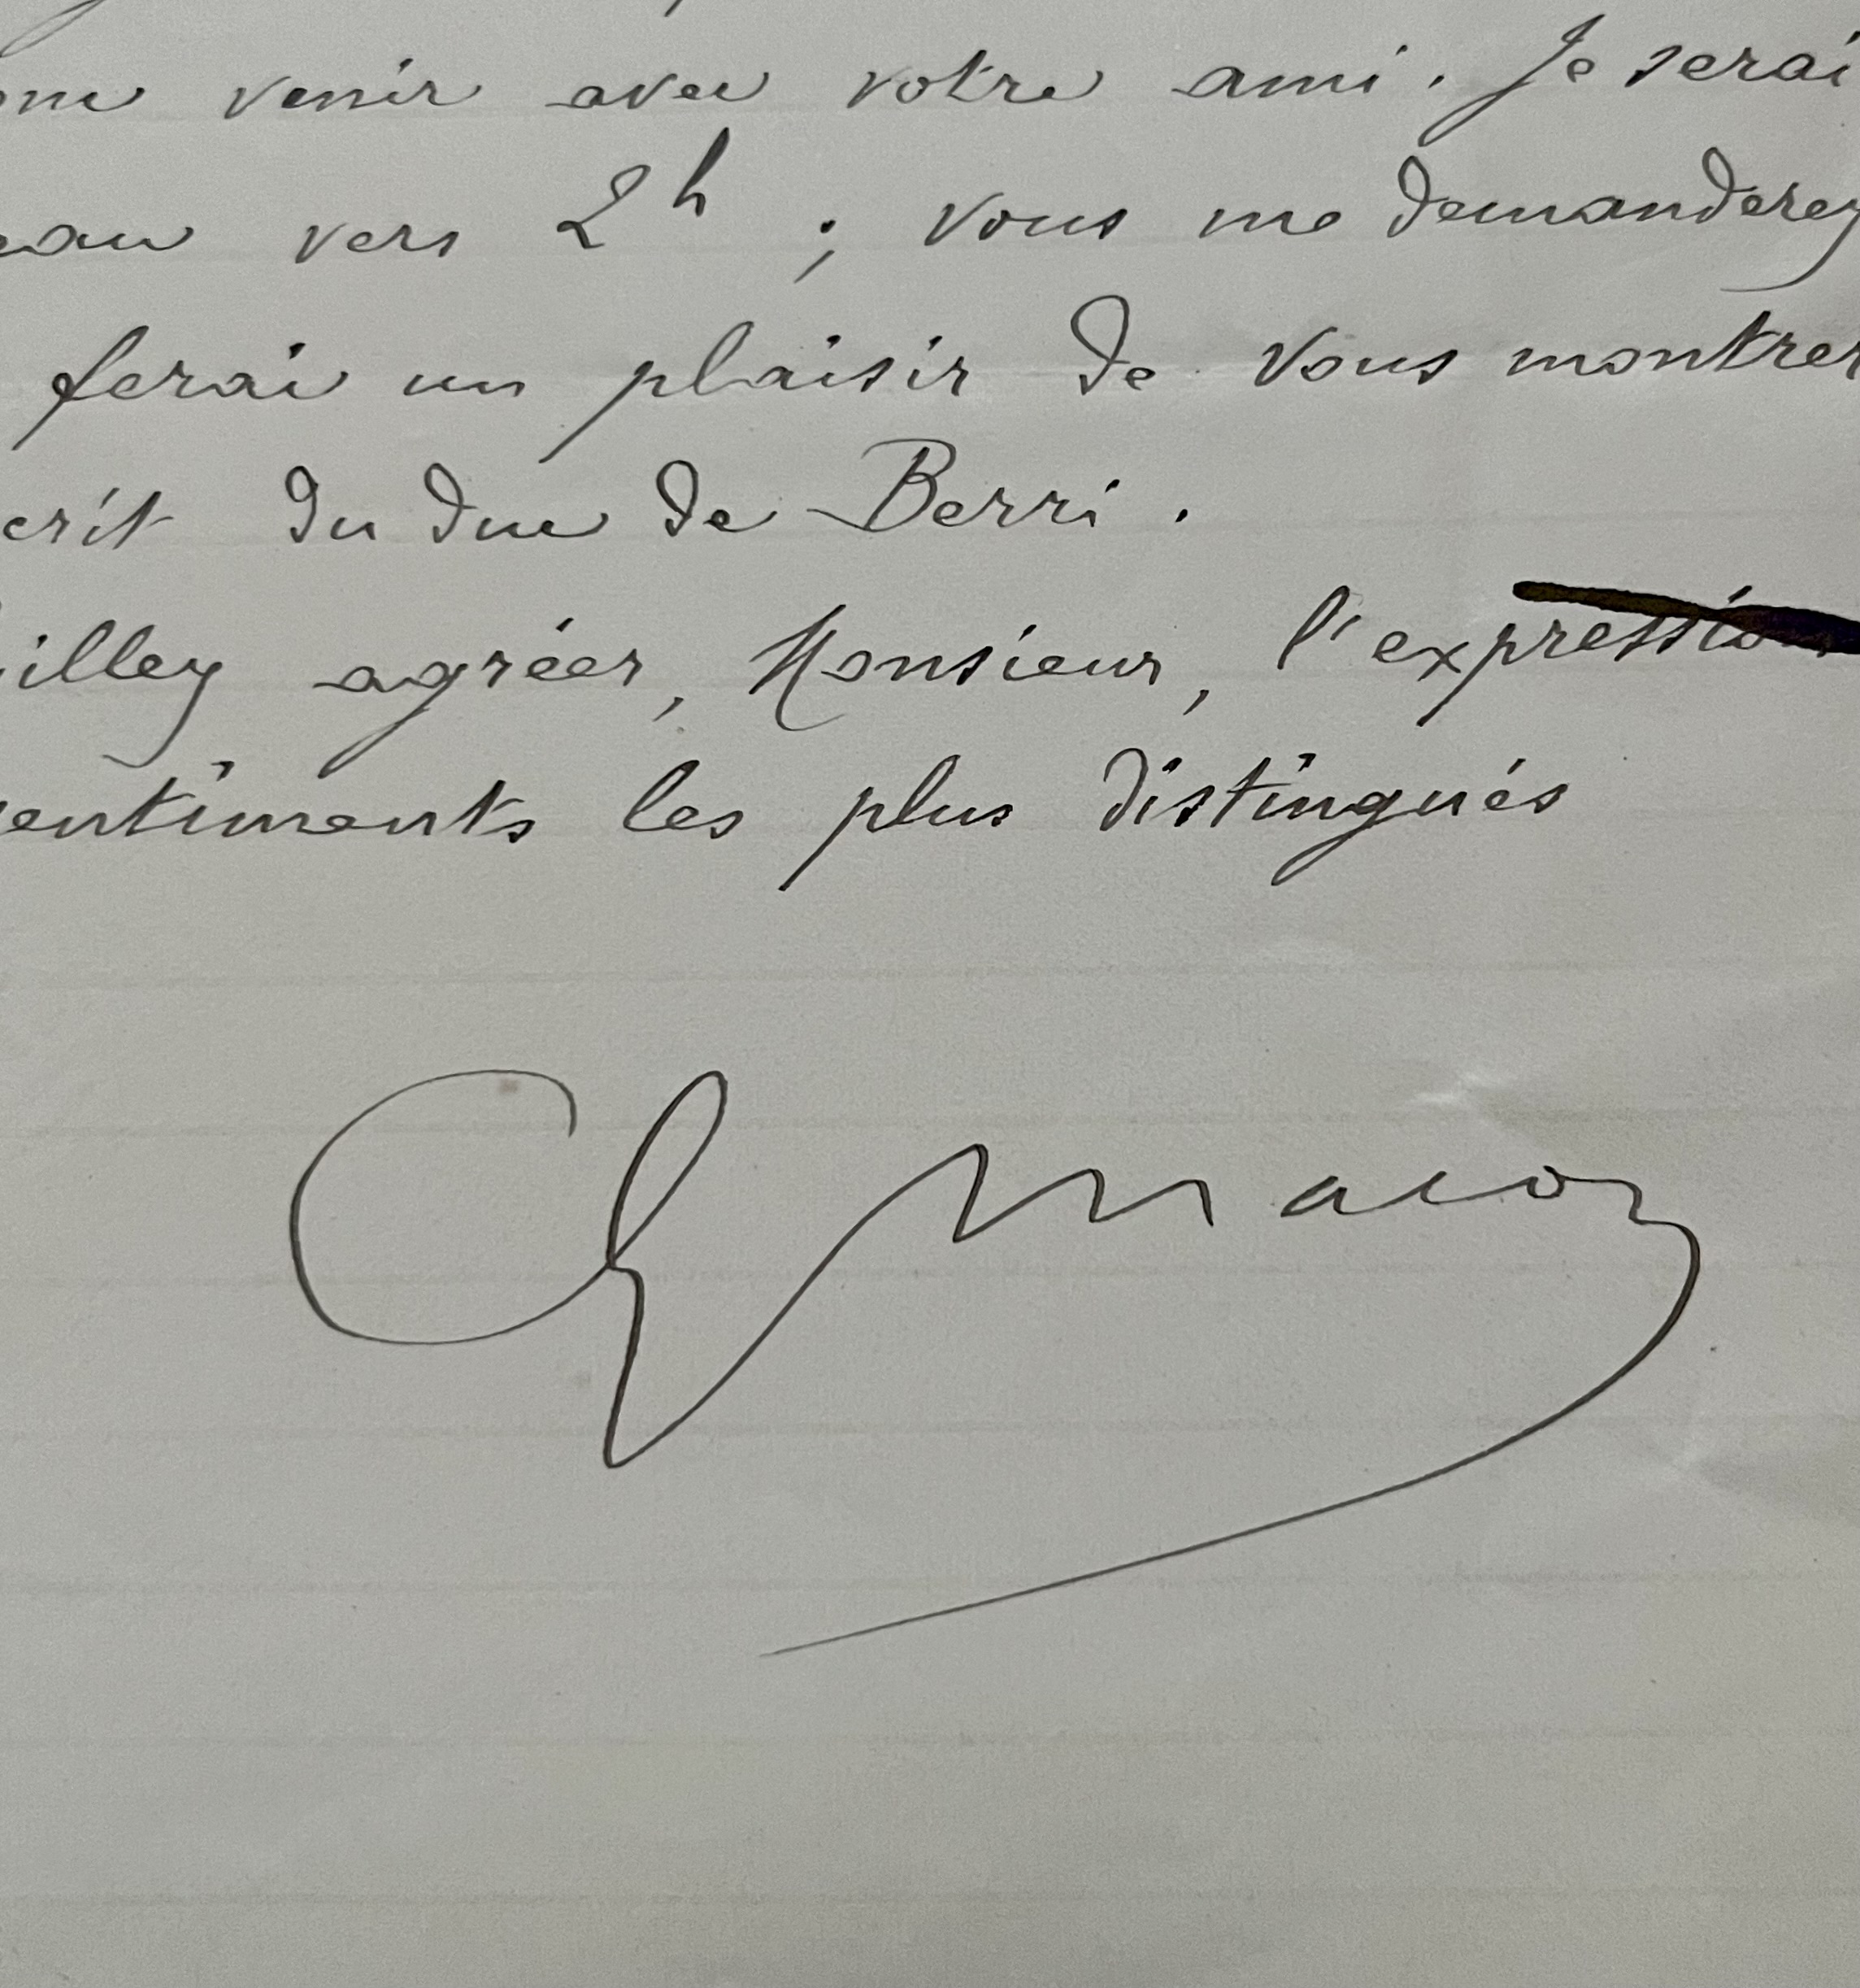 venir avec votre ami. Je serai
eau vers 2h ; vous me demanderez
ferai un plaisir de vous montrer
crit du duc de Berri.
illez agréer, Monsieur, l'expression
sentiments les plus distingués
G Macon